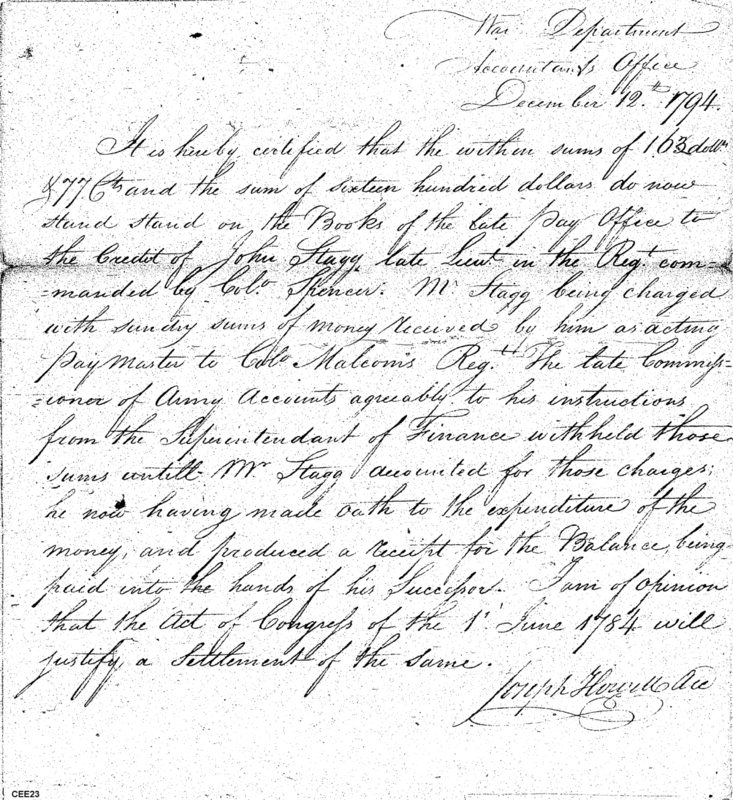 War Department
Accountants Office
December 12.th 1794.
It is hereby certified that the within sums of 163 dollrs
& 77 Cts and the sum of sixteen hundred dollars do now
stand stand on the Books of the late Pay Office to
the Credit of John Stagg late Lieut. in the Regt com=
=manded by Colo. Spencer. Mr Stagg being charged
with sundry sums of money received by him as acting
Pay Master to Colo. Malcom's Regt. The late Commiss=
=ioner of Army Accounts agreeably to his instructions
from the Superintendant of Finance withheld those
sums untill Mr Stagg accounted for those charges;
he now having made Oath to the expenditure of the
money, and produced a receipt for the Balance, being
paid into the hands of his Successor. I am of opinion
that the Act of Congress of the 1st June 1784 will
justify, a Settlement of the same.
Joseph Howell Acc
CEE23